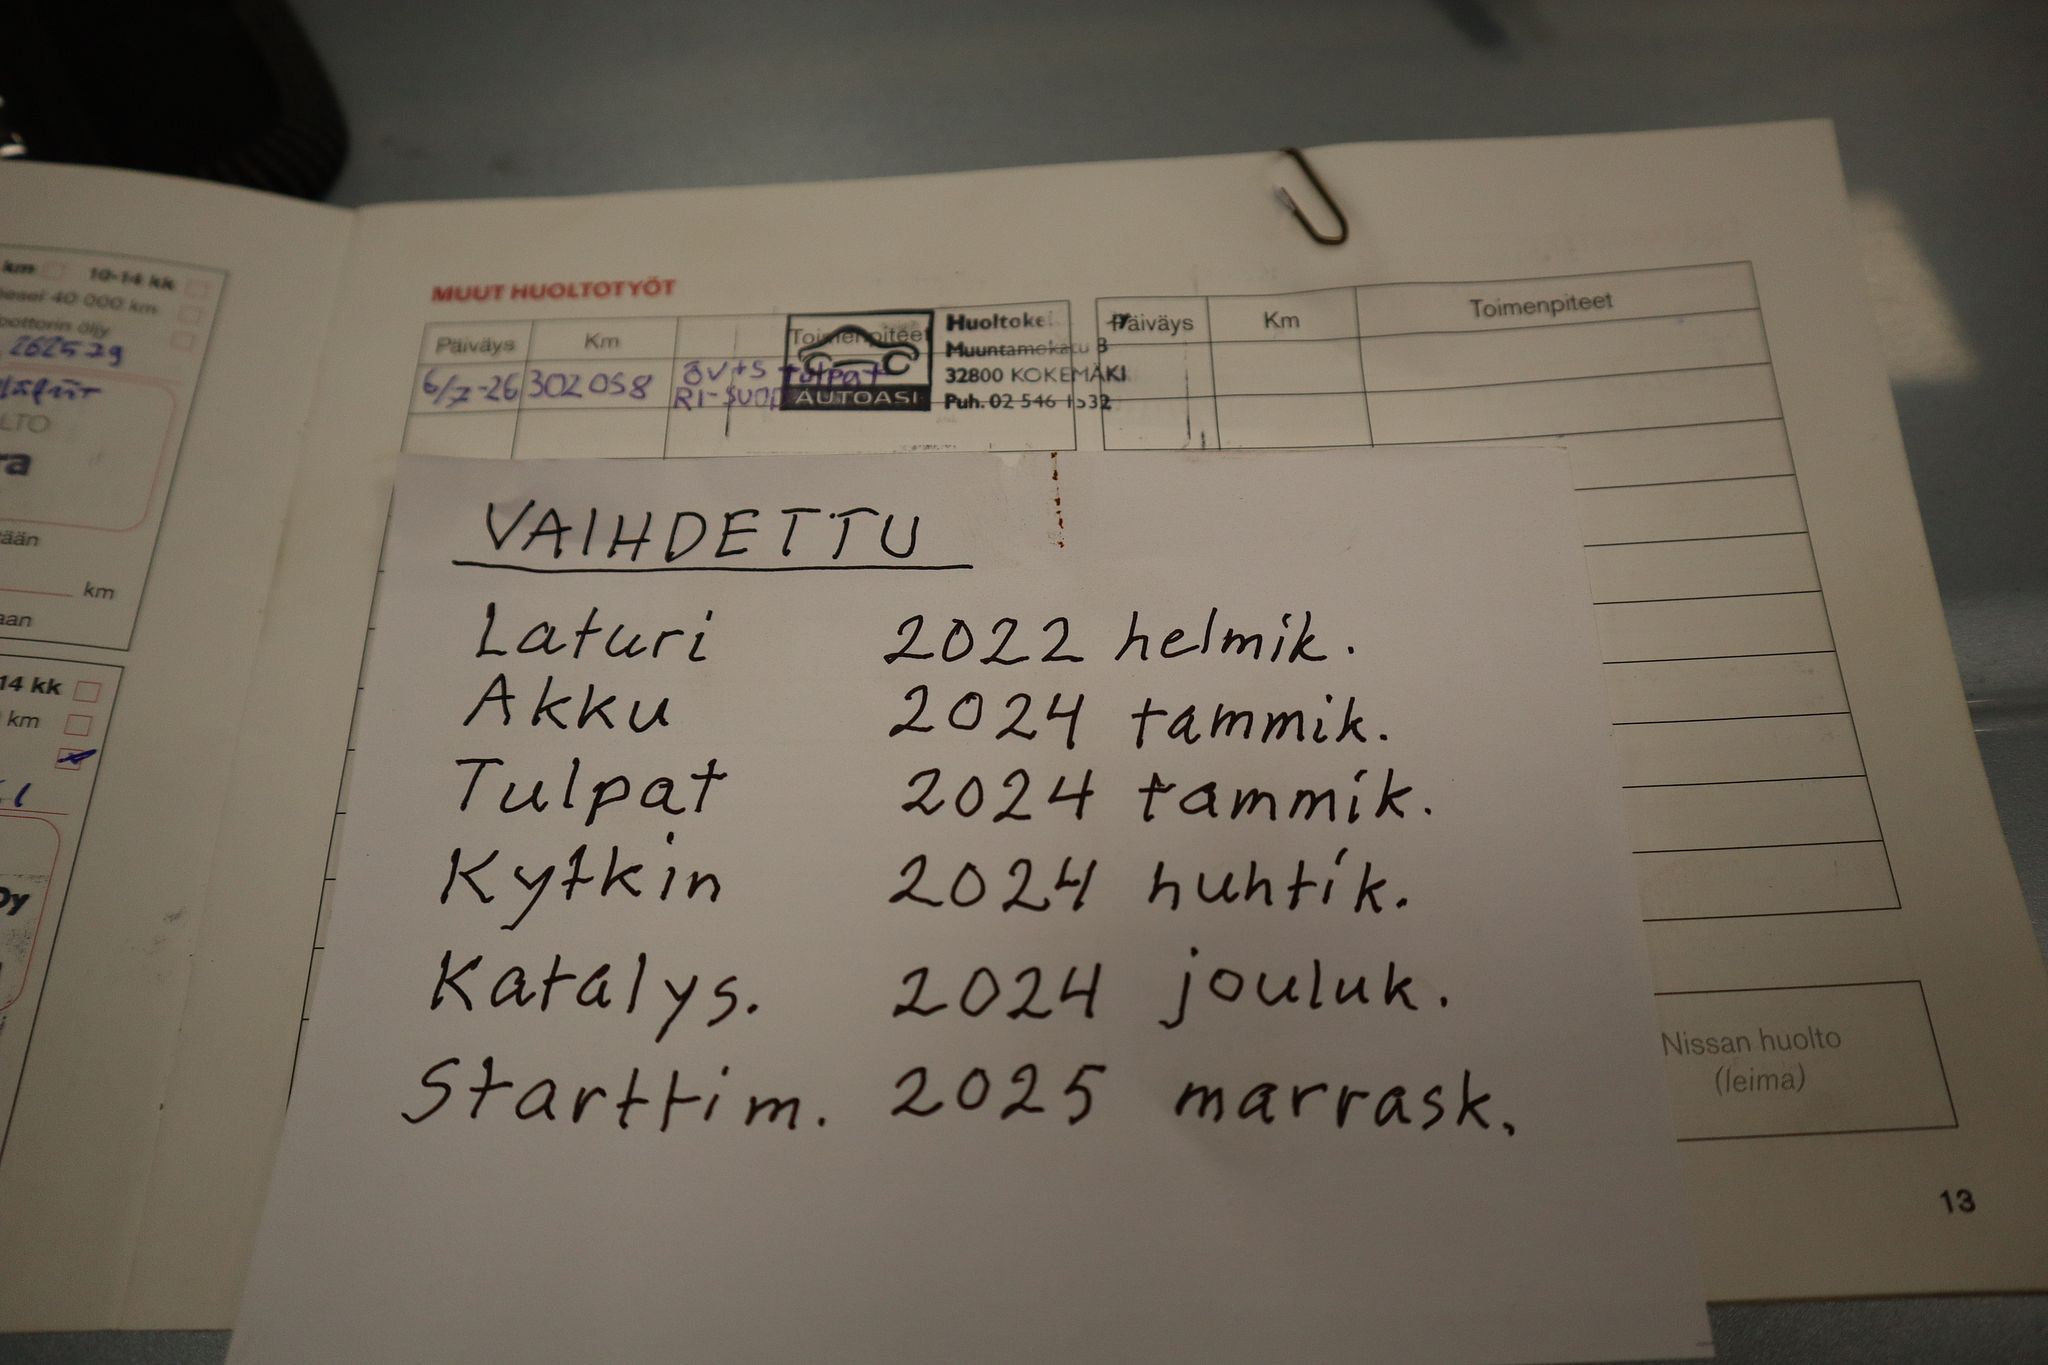 km 10-14 kk
40 000 km
öljy
262579
LTO
km
14 kk
km
Oy
MUUT HUOLTOTYÖT
Päiväys Km Toimenpiteet
6/7-26 302 058 öv+s tulpat
AUTOASI
Muuntamokatu 8
32800 KOKEMÄKI
Puh. 02 546 1532
Päiväys Km Toimenpiteet
VAIHDETTU
Laturi 2022 helmik.
Akku 2024 tammik.
Tulpat 2024 tammik.
Kytkin 2024 huhtik.
Katalys. 2024 jouluk.
Starttim. 2025 marrask.
Nissan huolto
(leima)
13